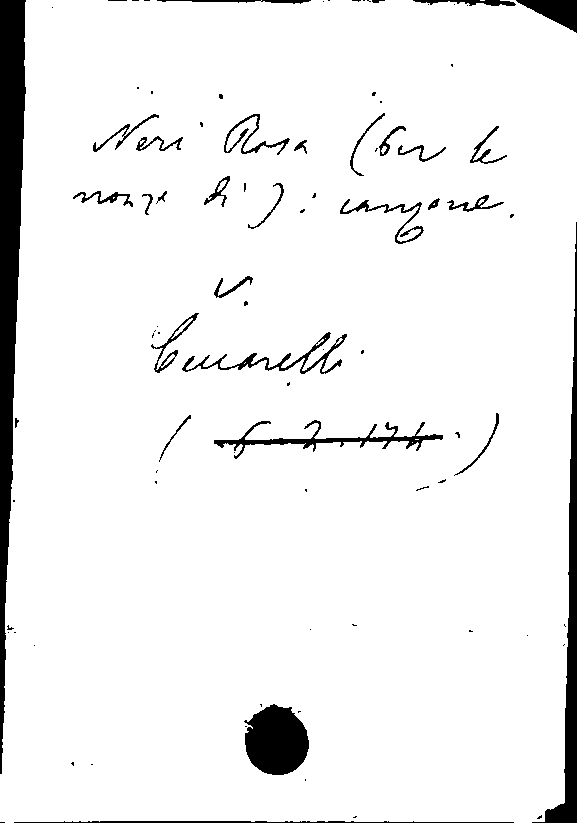 Neri Rosa (per le
nozze di): canzone.
v.
Ceccarelli
(6-2.174.)